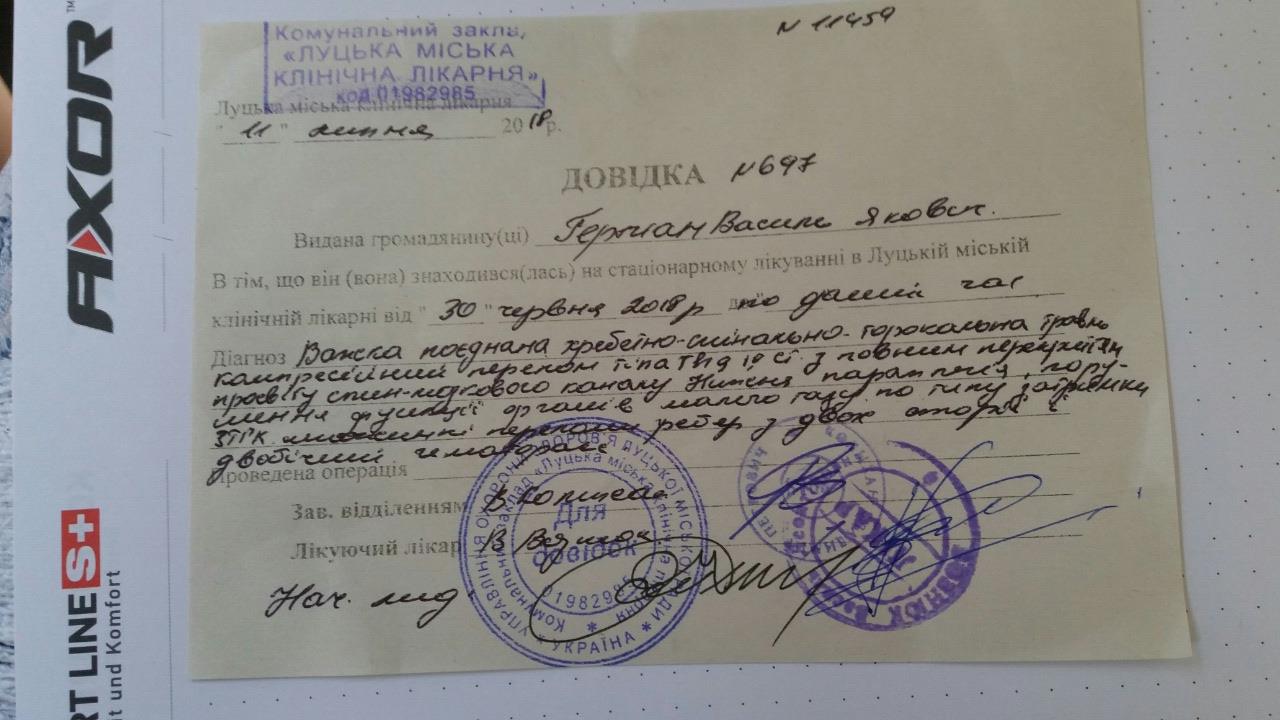 AXOR™
RT LINE S+
it und Komfort
N 11459
Комунальний закла,
«ЛУЦЬКА МІСЬКА
КЛІНІЧНА ЛІКАРНЯ»
код 01982985
Луцька міська клінічна лікарня
" 11 " липня 2018р.
ДОВІДКА N697
Видана громадянину(ці) Василь Якович.
В тім, що він (вона) знаходився(лась) на стаціонарному лікуванні в Луцькій міській
клінічній лікарні від " 30 " червня 2018р по даний час
Діагноз Важка поєднана хребетно-спінально-торокальна травма
компресійний перелом тіла ст. з повним перекриттям
просвіту каналу Нижня параплегія, пору-
шення функції органів малого тазу по типу затримки
ЗТГК множинні переломи ребер з двох сторін
двобічний гемоторакс
Проведена операція
Зав. відділенням
Лікуючий лікар В
Нач. мед.
УПРАВЛІННЯ ОХОРОНИ ЗДОРОВ'Я ЛУЦЬКОЇ МІСЬКОЇ РАДИ * УКРАЇНА *
Комунальний заклад «Луцька міська клінічна лікарня»
Для
довідок
01982985